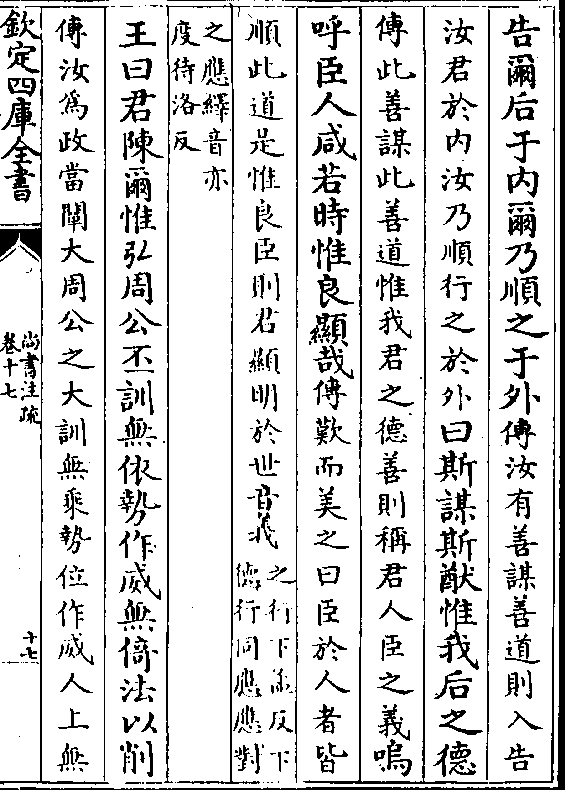 告爾后于内爾乃順之于外傳汝有善謀善道則入告
汝君於内汝乃順行之於外曰斯謀斯猷惟我后之德
傳此善謀此善道惟我君之德善則稱君人臣之義嗚
呼臣人咸若時惟良顯哉傳歎而美之曰臣於人者皆
順此道是惟良臣則君顯明於世音義
之行下孟反下
德行同應應對
之應繹音亦
度待洛反
王曰君陳爾惟弘周公丕訓無依勢作威無倚法以削
傳汝為政當闡大周公之大訓無乘勢位作威人上無
欽定四庫全書
尚書注疏
卷十七
十七